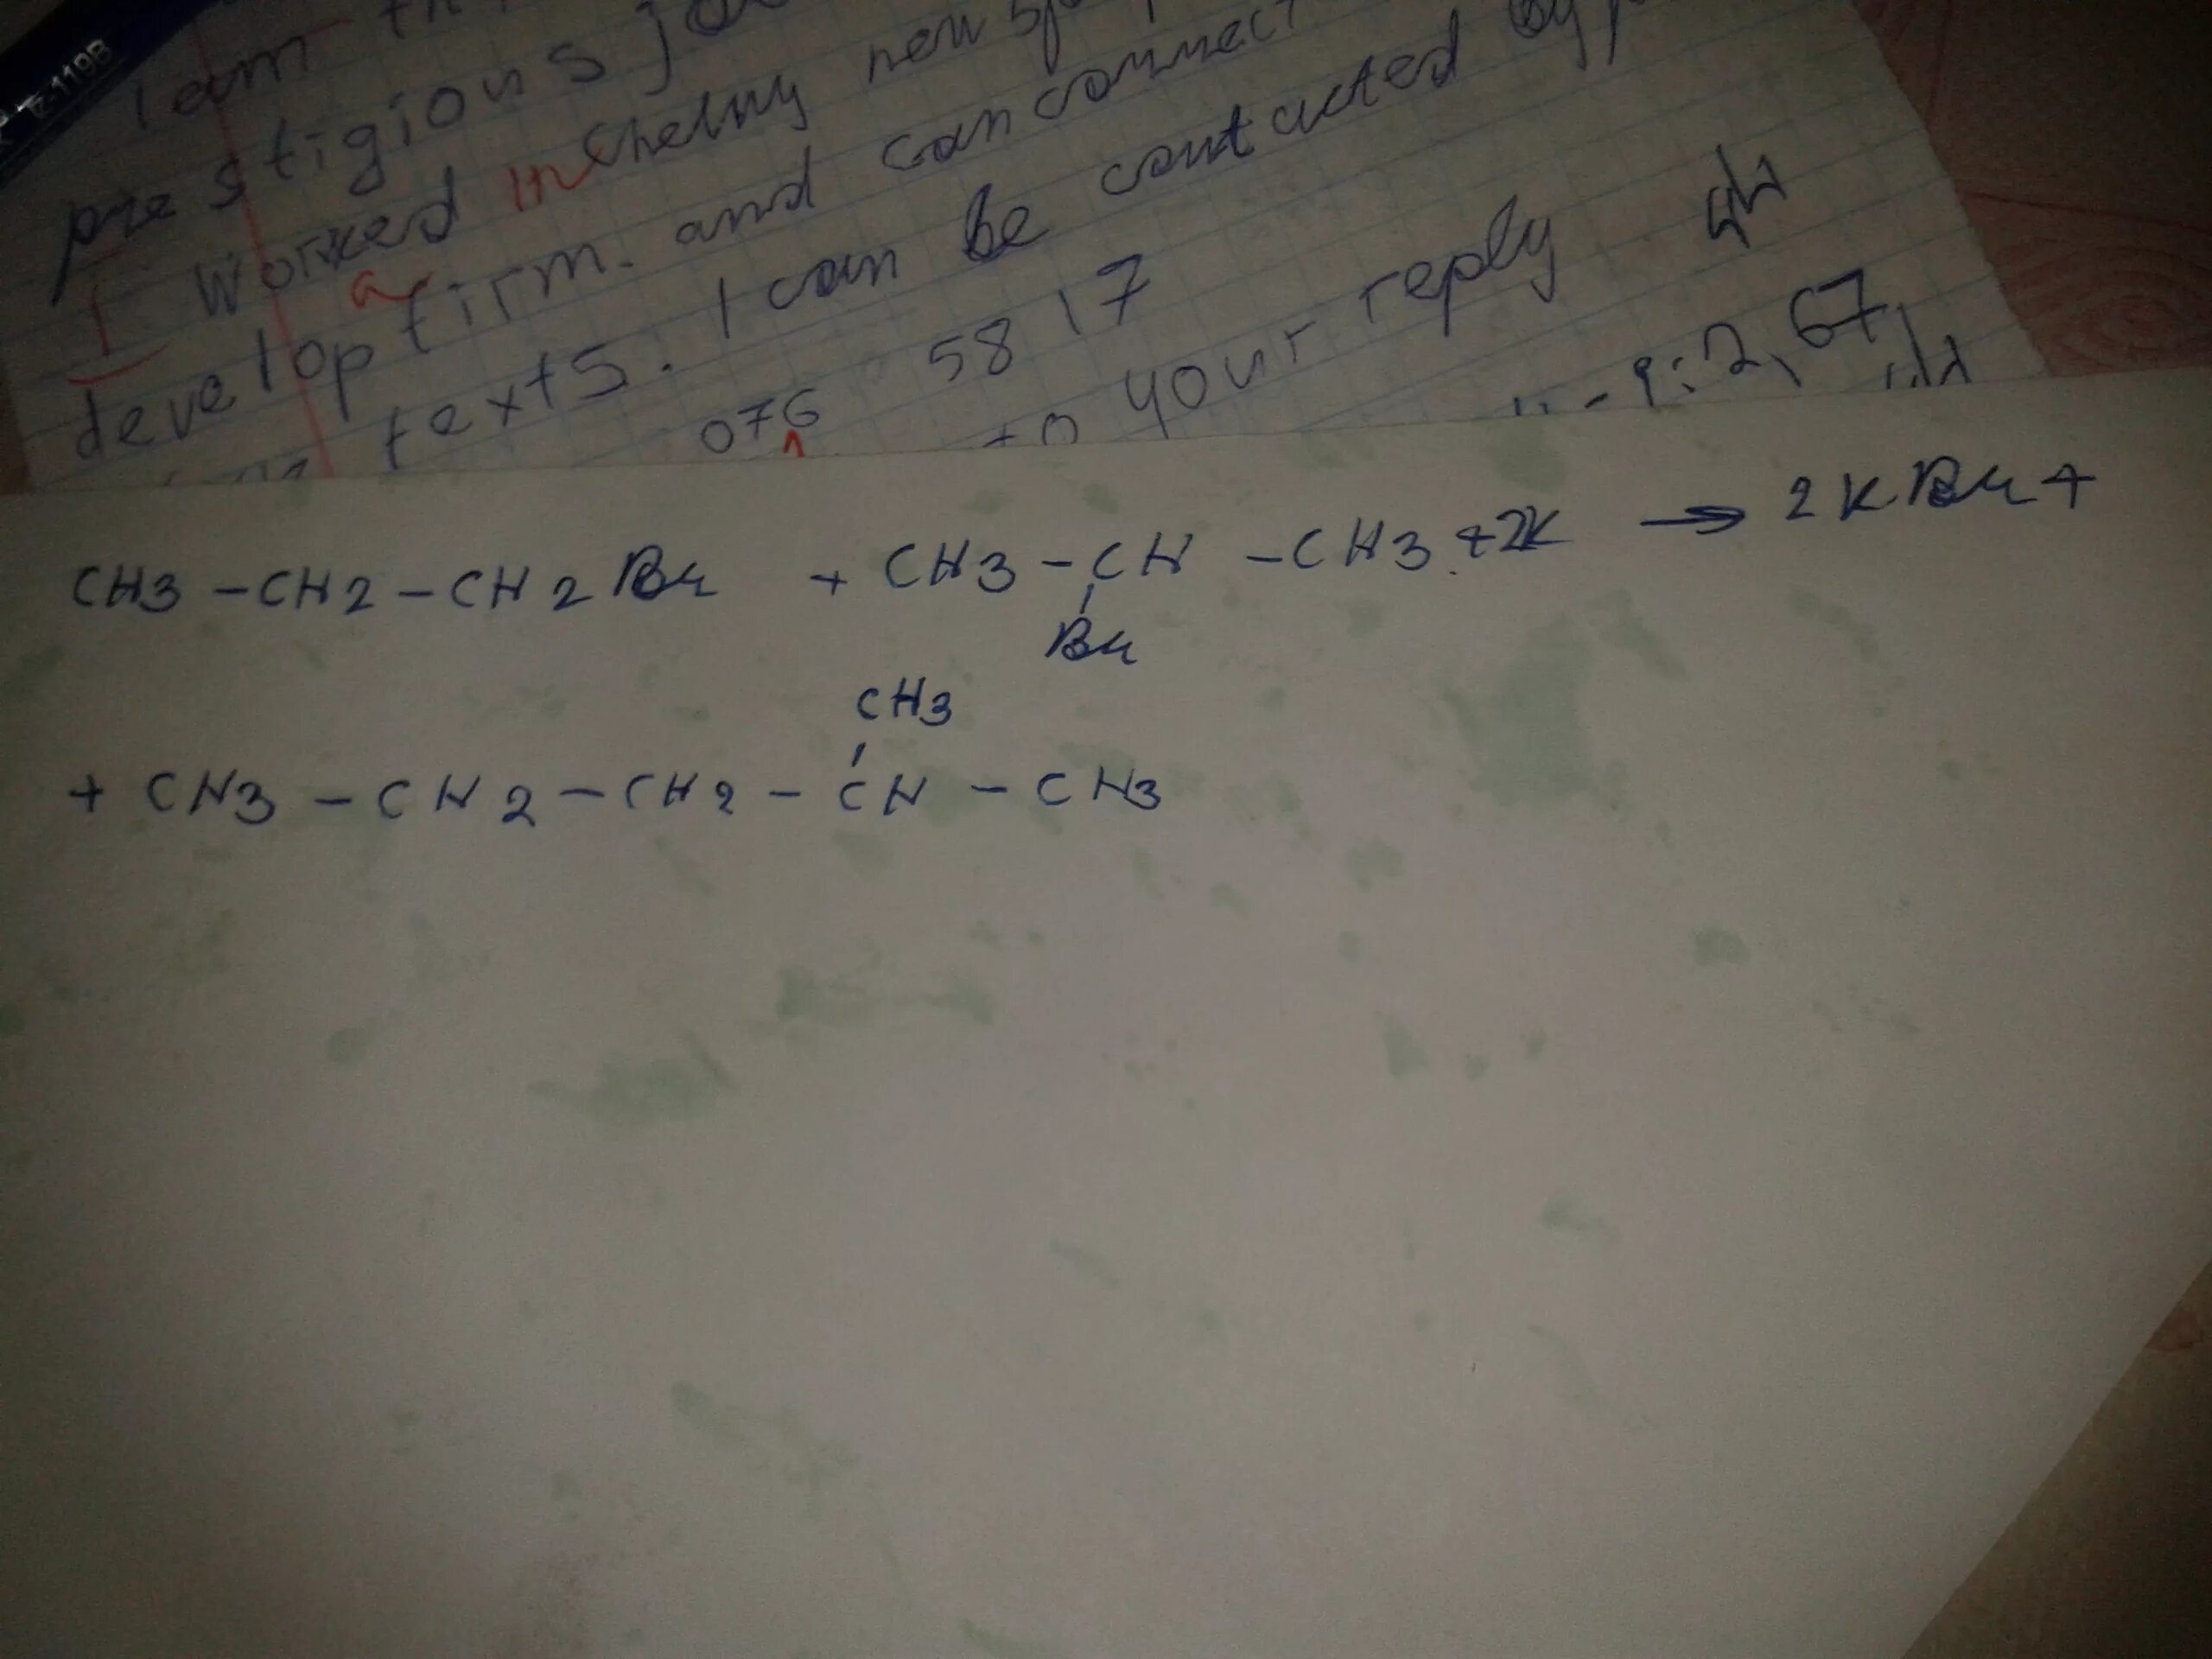 1198
I am
prestigious
I worked in Chelny new
a
develop firm. and can connect
texts. I can be contacted by
076 58 17
to your reply
: 2,67
CH3 - CH2 - CH2 Br + CH3 - CH - CH3 + 2K → 2K Br +
Br
CH3
+ CH3 - CH2 - CH2 - CH - CH3